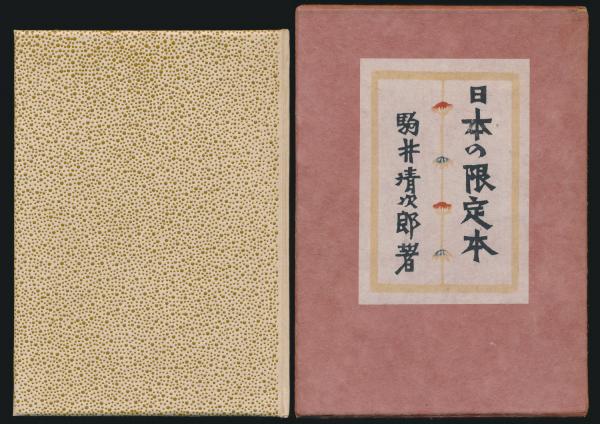 日本の限定本
駒井清次郎著